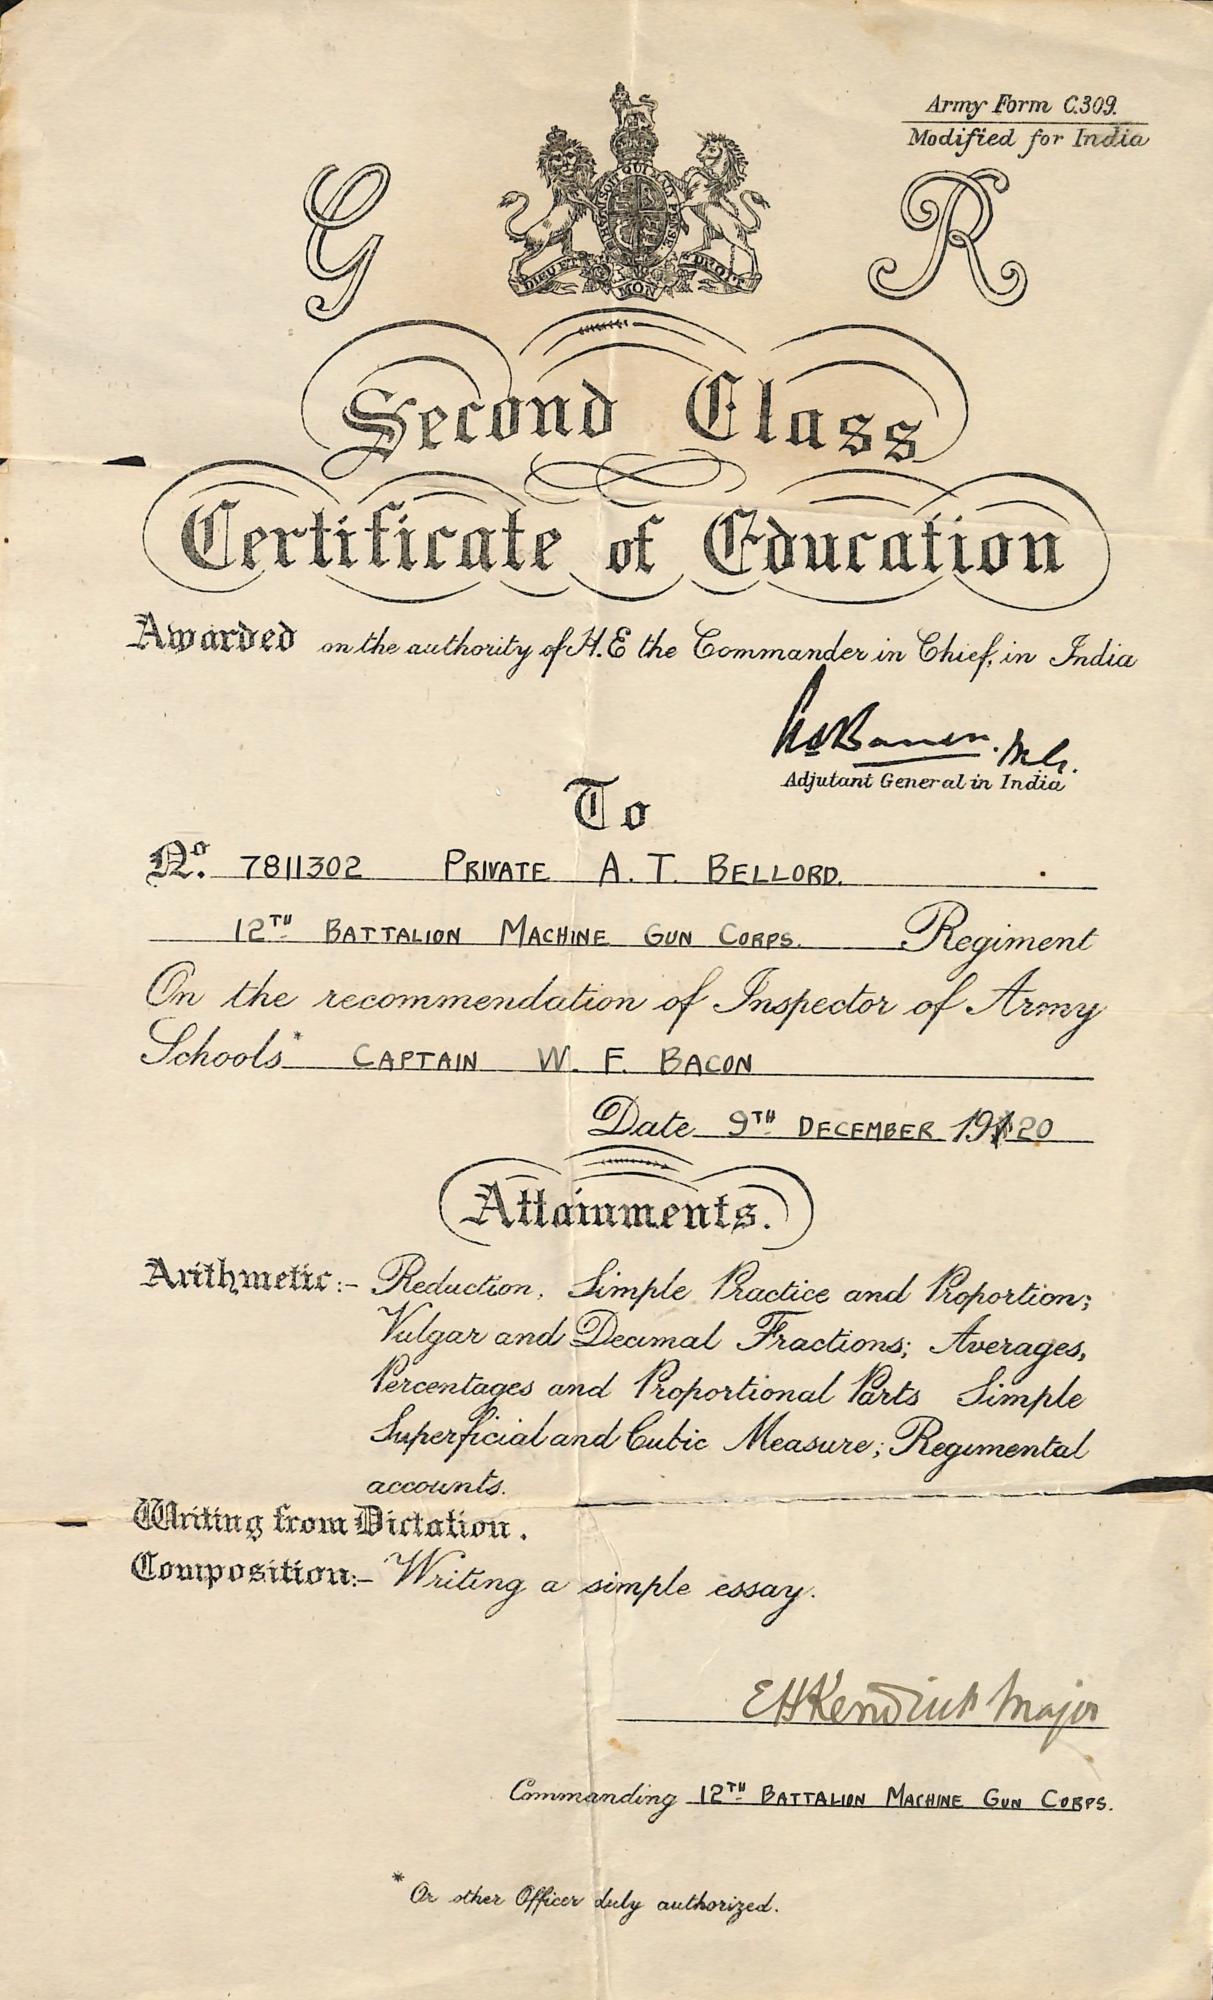 Army Form C.309.
Modified for India
G R
HONI SOIT QUI MAL Y PENSE
DIEU ET MON DROIT
Second Class
Certificate of Education
Awarded on the authority of H.E the Commander in Chief, in India
Adjutant General in India
To
No. 7811302 PRIVATE A. T. BELLORD.
12TH BATTALION MACHINE GUN CORPS. Regiment
On the recommendation of Inspector of Army
Schools* CAPTAIN W. F. BACON
Date 9TH DECEMBER 1920
Attainments.
Arithmetic:- Reduction, Simple Practice and Proportion;
Vulgar and Decimal Fractions; Averages,
Percentages and Proportional Parts Simple
Superficial and Cubic Measure; Regimental
accounts.
Writing from Dictation.
Composition:- Writing a simple essay.
EHKendrick Major
Commanding 12TH BATTALION MACHINE GUN CORPS.
* Or other Officer duly authorized.